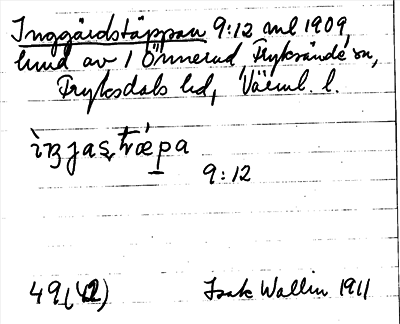 Inggärdstäppan 9:12 enl 1909,
hmd av / Önnerud, Fryksände sn,
Fryksdals hd, Värml. l.
9:12
49(42) Isak Wallin 1911